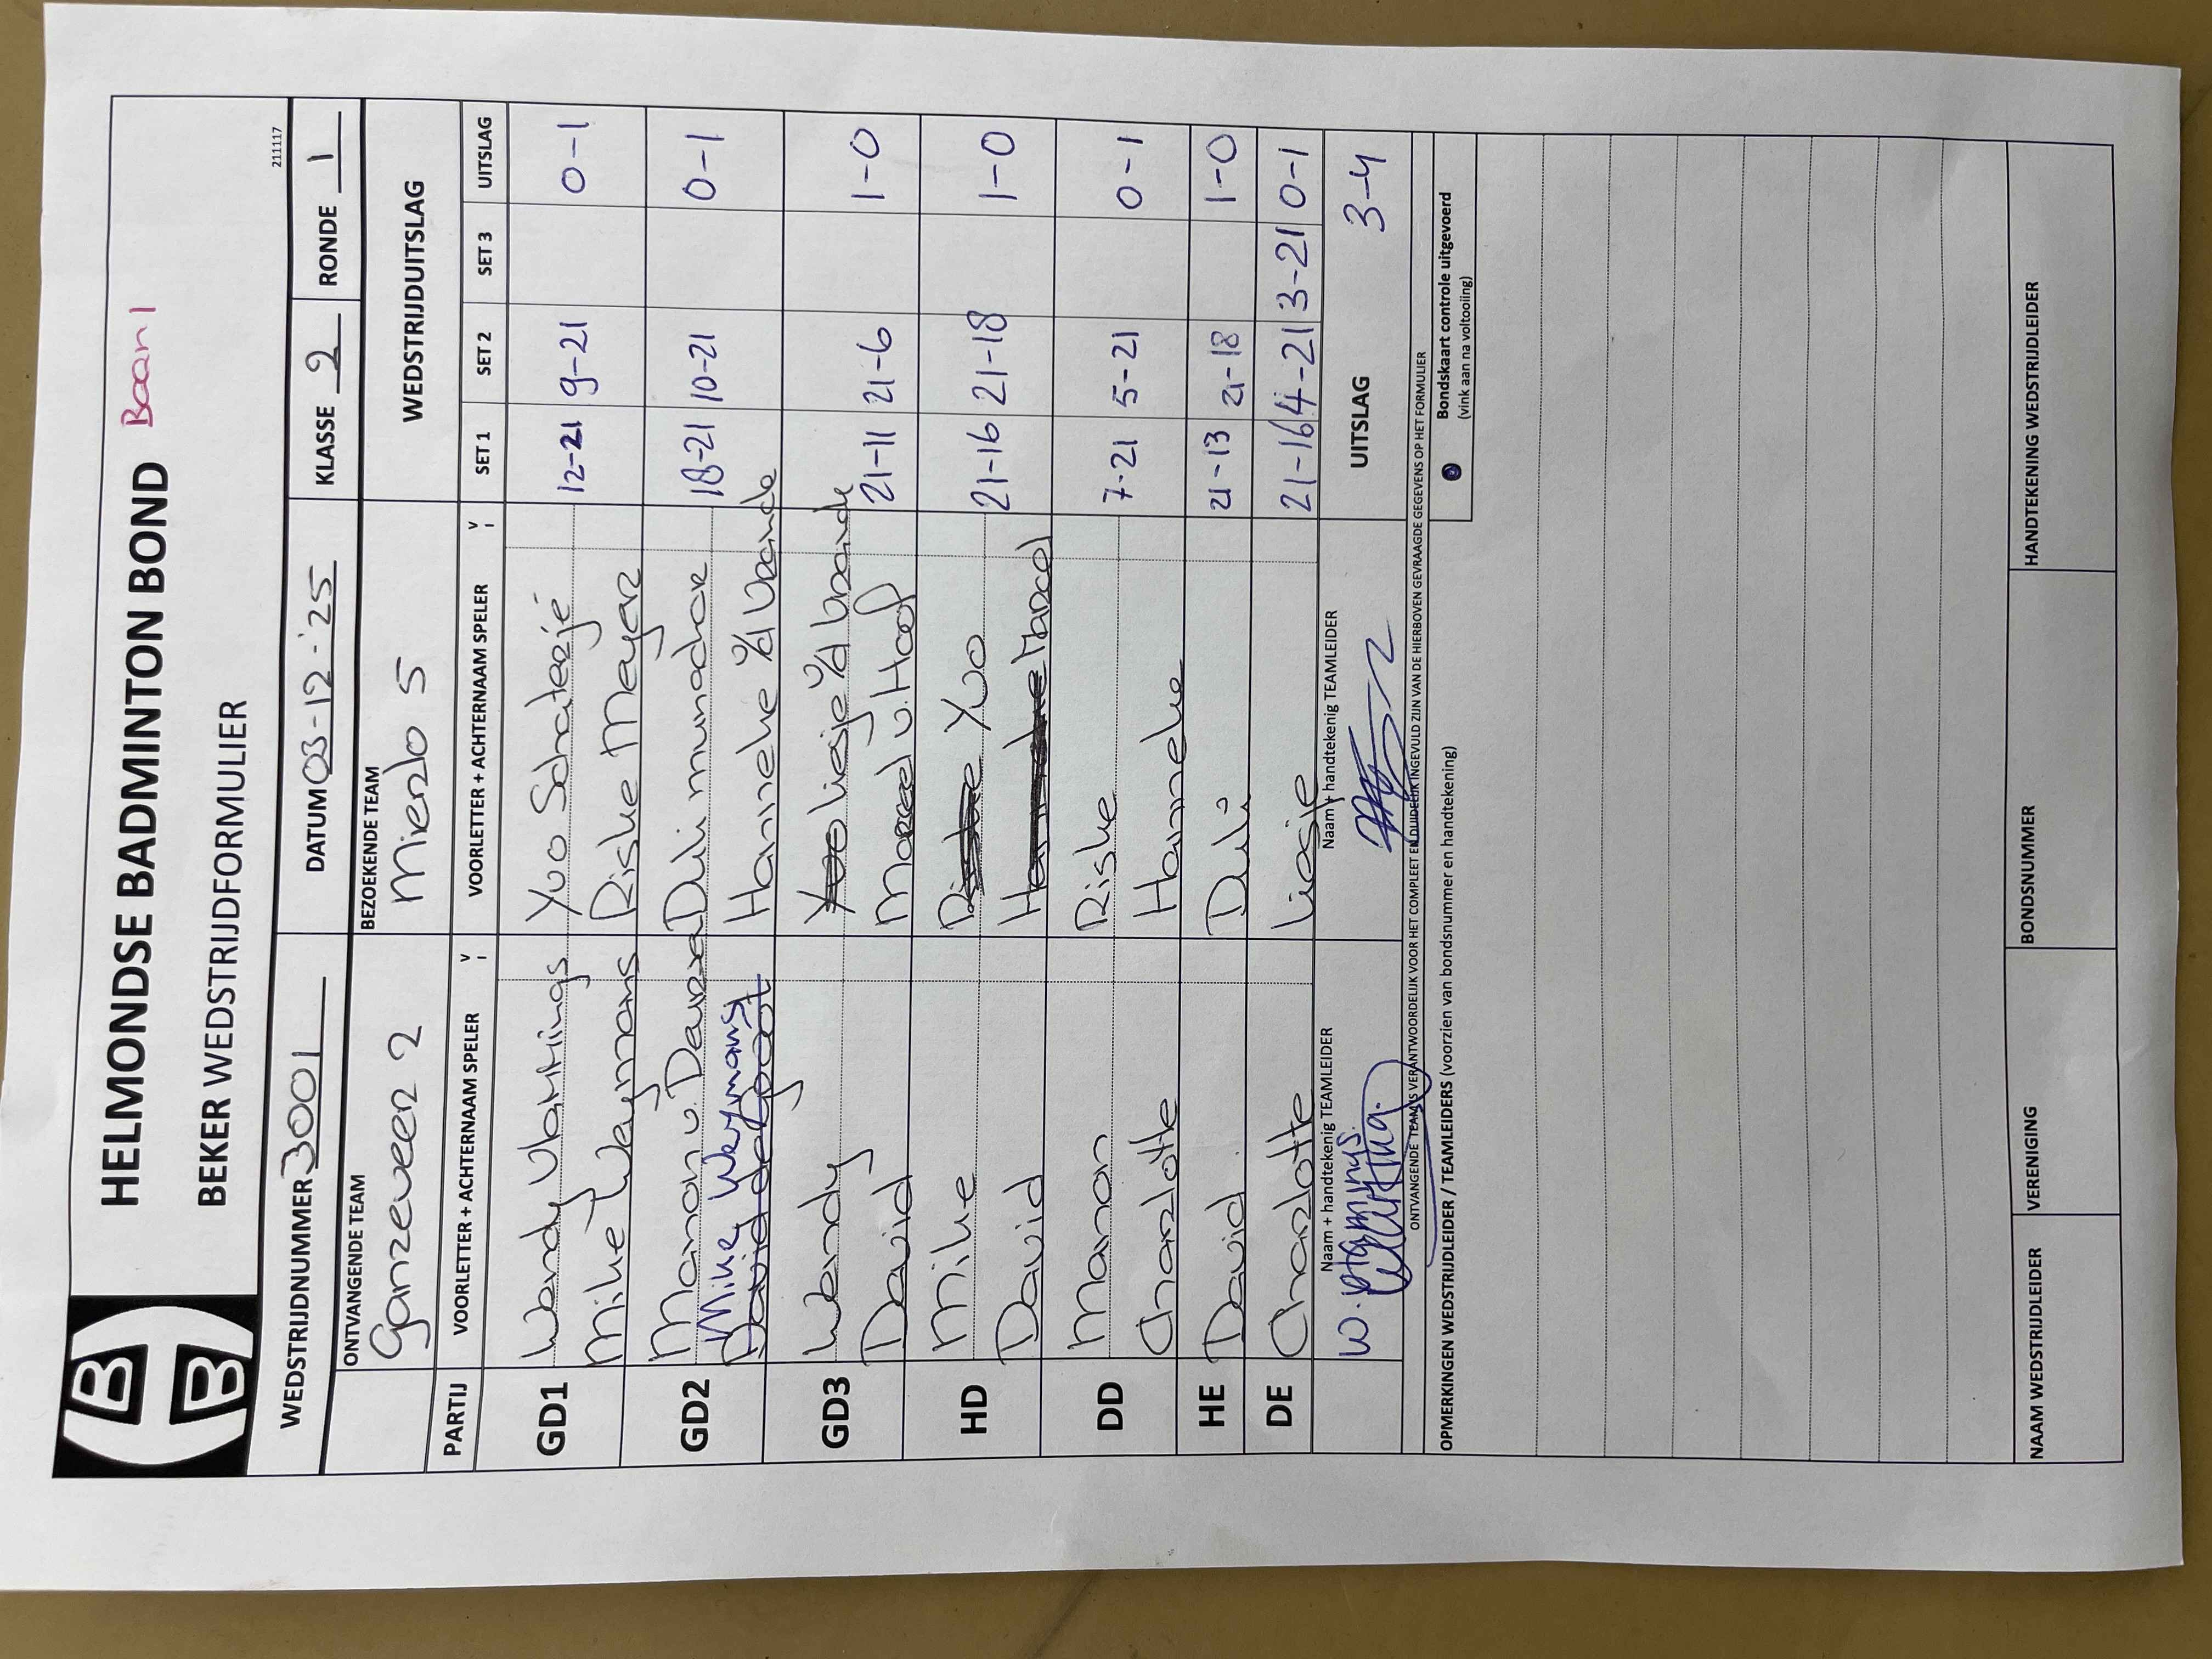 HELMONDSE BADMINTON BOND Baan 1
BEKER WEDSTRIJDFORMULIER
211117
WEDSTRIJDNUMMER 3001 DATUM 03-12-'25 KLASSE 2 RONDE 1
ONTVANGENDE TEAM BEZOEKENDE TEAM WEDSTRIJDUITSLAG
Ganzeveer 2 Mierlo 5
PARTIJ VOORLETTER + ACHTERNAAM SPELER V I VOORLETTER + ACHTERNAAM SPELER V I SET 1 SET 2 SET 3 UITSLAG
GD1 Wendy Yvo 12-21 9-21 0-1
Mike Weymans Riske Meyer
GD2 Manon v. Deurzen Duli 18-21 10-21 0-1
Mike Weymans Hanneke v/d
David de Groot
GD3 Wendy Liesje v/d 21-11 21-6 1-0
David Marcel v. Hoof
HD Mike Yvo 21-16 21-18 1-0
David Marcel
DD Manon Riske 7-21 5-21 0-1
Charlotte Hanneke
HE David Duli 21-13 21-18 1-0
DE Charlotte Liesje 21-16 4-21 3-21 0-1
Naam + handtekenig TEAMLEIDER Naam + handtekenig TEAMLEIDER UITSLAG 3-4
ONTVANGENDE TEAM IS VERANTWOORDELIJK VOOR HET COMPLEET EN DUIDELIJK INGEVULD ZIJN VAN DE HIERBOVEN GEVRAAGDE GEGEVENS OP HET FORMULIER
OPMERKINGEN WEDSTRIJDLEIDER / TEAMLEIDERS (voorzien van bondsnummer en handtekening) Bondskaart controle uitgevoerd
(vink aan na voltooiing)
NAAM WEDSTRIJDLEIDER VERENIGING BONDSNUMMER HANDTEKENING WEDSTRIJDLEIDER